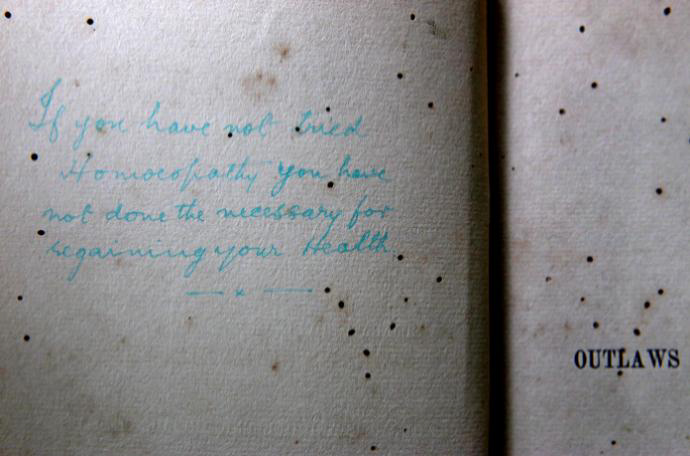 If you have not tried
Homoeopathy you have
not done the necessary for
regaining your Health.
OUTLAWS